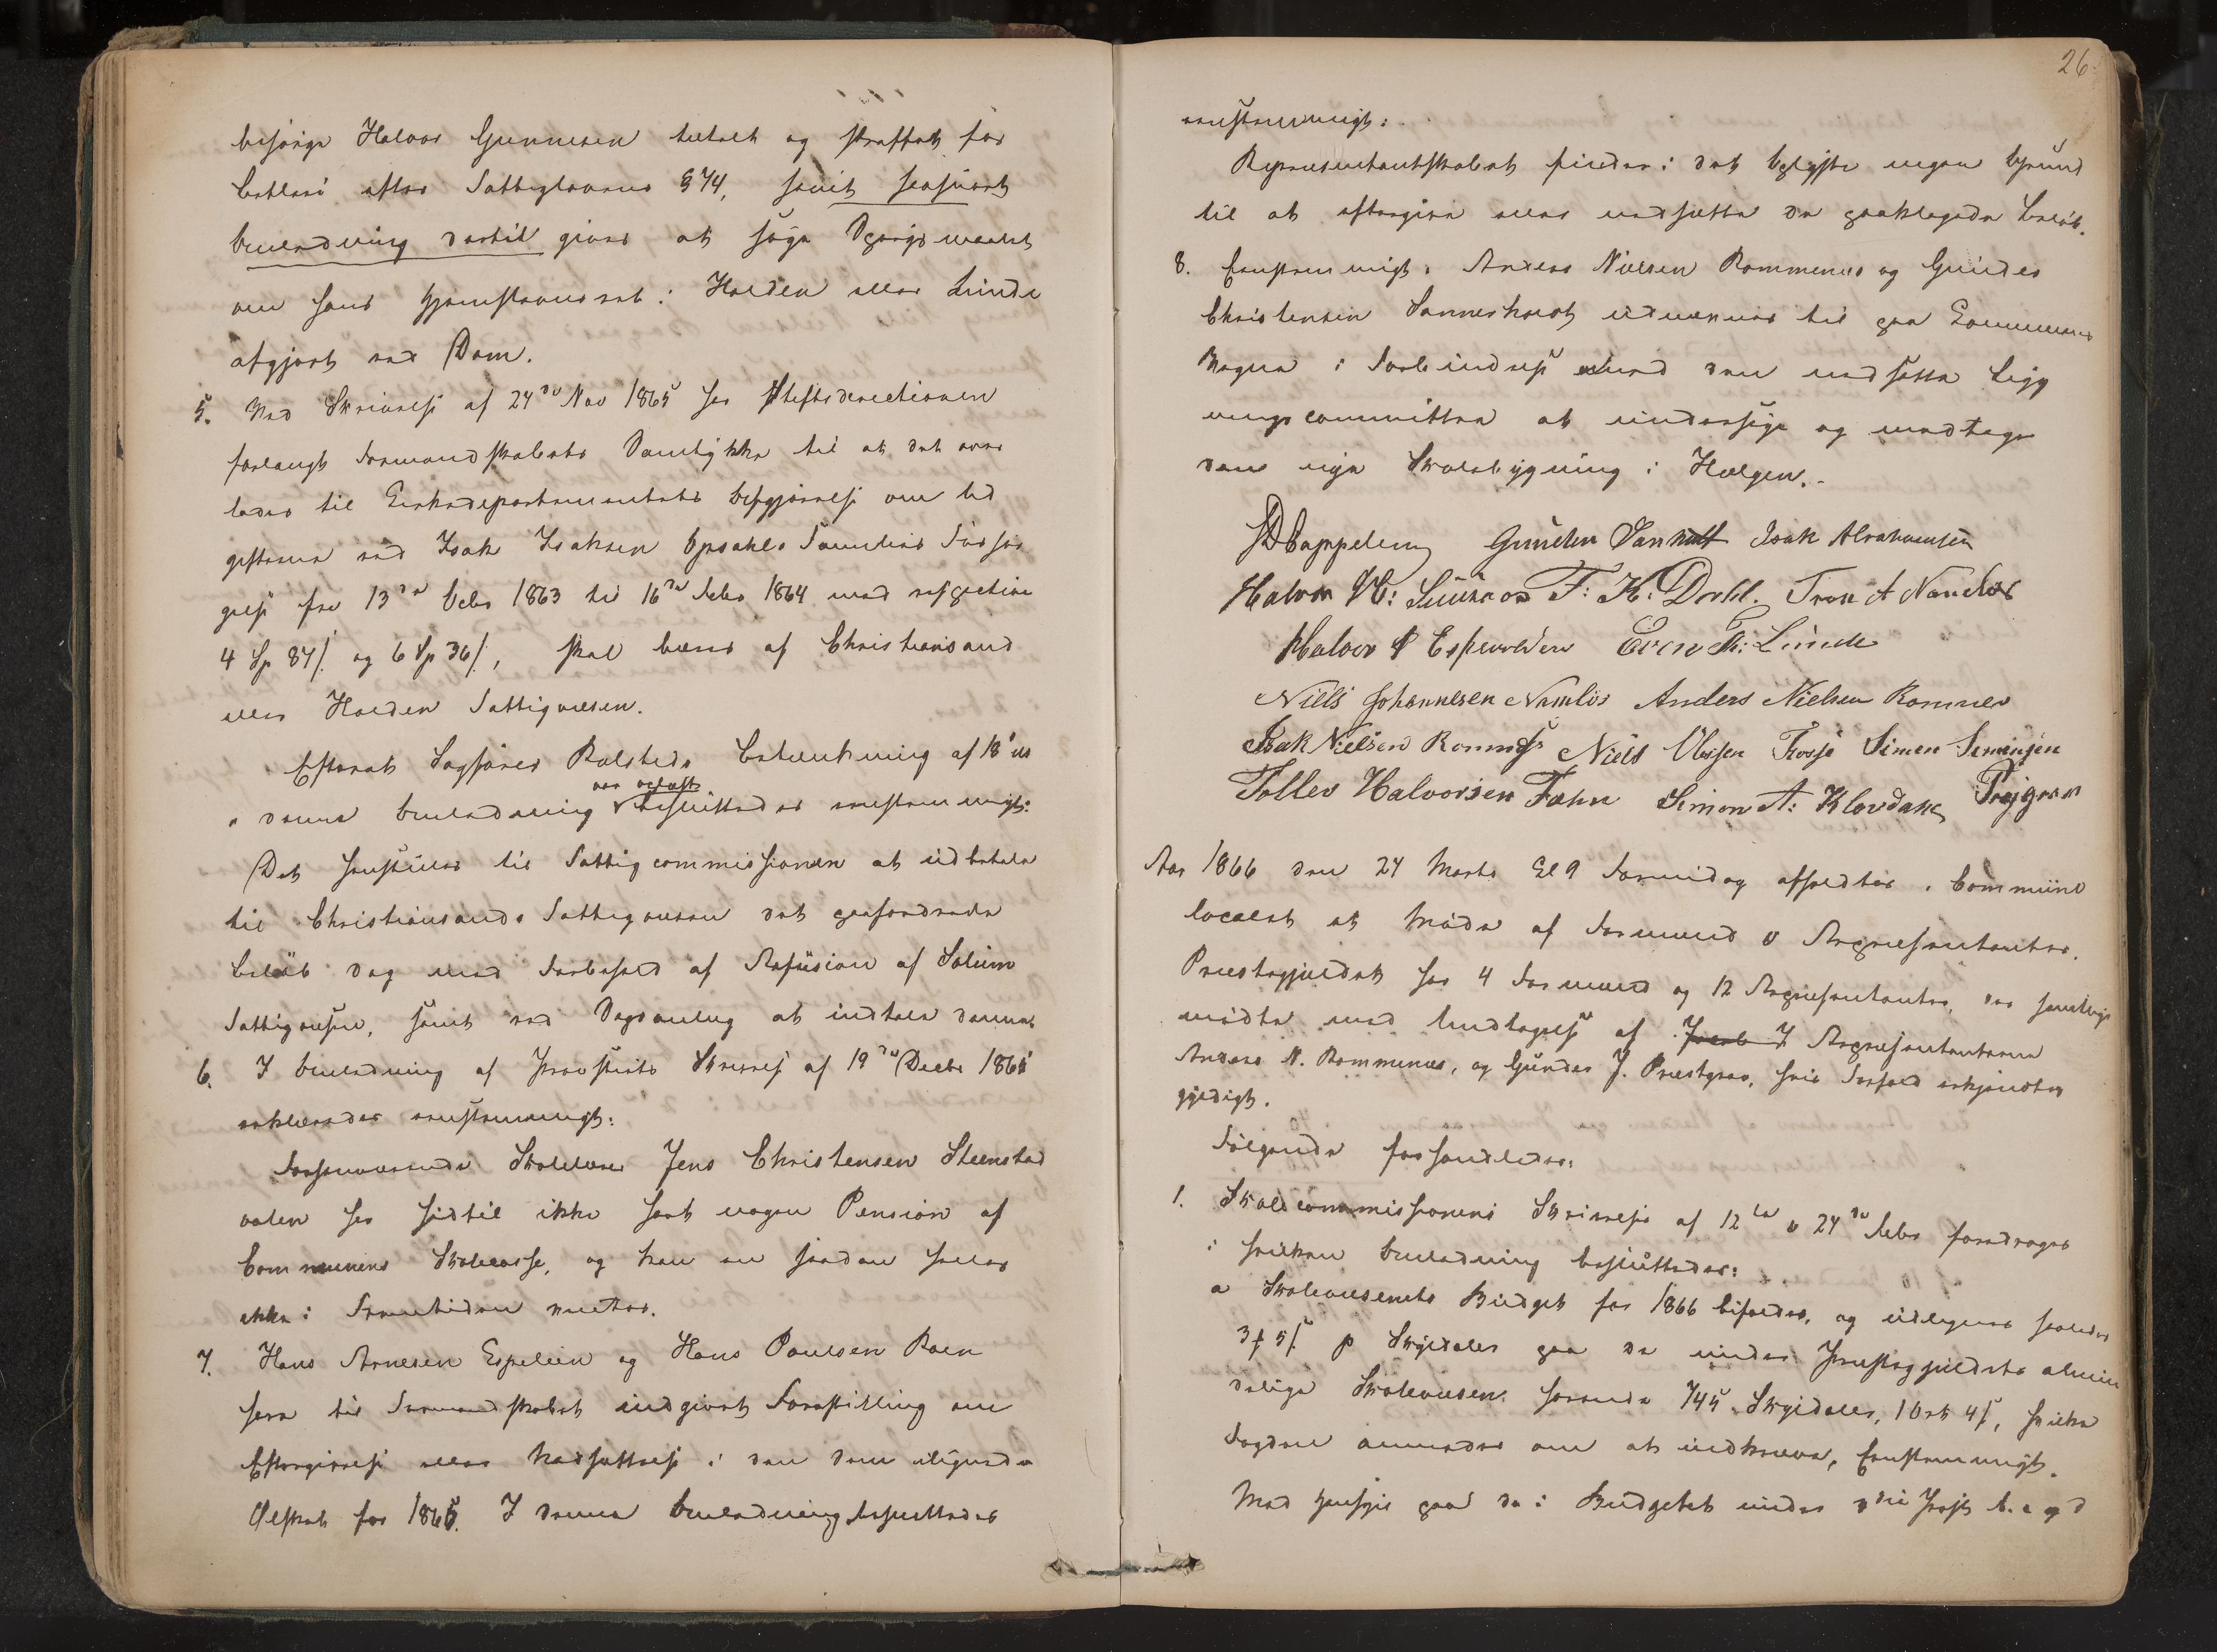 besørge Halvor Gunnesen tiltalt og straffet for
Betleri efter Fattiglovens § 74, samt henført
Anledning dertil gives at søge Spørgsmaalet
om hans Hjemstavnsret i Holden eller Lunde
afgjort ved Dom.
5. Med Skrivelse af 24de Nov 1865 har Stiftsdirectionen
forlangt Formandskabets Samtykke til at det over
lades til Kirkedepartementets Afgjørelse om Ud
gifterne ved Isak Isaksen Opsahls Families Forsør
gelse fra 13de Octbr 1863 til 16de Febr 1864 med respective
4 Sp 87 s. og 6 Sp 36 s., skal bæres af Christiansand
eller Holden Fattigvæsen.
Efterat Sagfører Rolsteds Betænkning af 18 ds
i denne Anledning var oplæst besluttedes eenstemmigt:
Det henstilles til Fattigcommissionen at udbetale
til Christiansands Fattigvæsen det paafordrede
Beløb dog med Forbehold af Refusion af Solum
Fattigvæsen, samt ved Søgsanlæg at indtale denne.
6. I Anledning af Provstiets Skrivelse af 19de Decbr 1865
erklæredes eenstemmigt:
Forhenværende Skolelærer Jens Christensen Steenstad
valen har hidtil ikke havt nogen Pension af
Communens Skolecasse, og kan en saadan heller
ikke i Fremtiden ventes.
7. Hans Arnesen Espelien og Hans Paulsen Roen
have til Formandskabet indgivet Forestilling om
Eftergivelse eller Nedsættelse i den dem ilignede
Ølskat for 1865. I denne Anledning besluttedes
26.
eenstemmigt:
Repræsentantskabet finder i det Oplyste ingen Grund
til at eftergive eller nedsætte de paaklagede Beløb.
8. Eenstemmigt. Anders Nielsen Rommenes og Gunder
Christensen Sannesholdt udnævnes til paa Communens
Vegne i Forbindelse med den nedsatte Byg
ningscommittee at undersøge og modtage
den nye Skolebygning i Helgen.
D Cappelen Gunder Sanholt Isak Abrahamsen
Halvor H: F: H: Dahl. Tron A Namløs
Halvor P Espevolden Even Th: Lunde
Niels Johannesen Namløs Anders Nielsen Romnes
Isak Nielsen Romnes Niels Olssen Simen Simensen
Tollev Halvorsen Fæhn Simon A: Klovdahl
Aar 1866 den 24 Marts Kl 9 Formidag afholdtes i Commune
localet et Møde af Formænd & Repræsentanter.
Præstegjældet har 4 Formænd og 12 Repræsentanter, der samtlige
mødte med Undtagelse af Repræsentanterne
Anders N. Rommenes, og Gunder J. Præstgaar, hvis Forfald erkjendtes
gyldigt.
Følgende forhandledes:
1. Skolecommissionens Skrivelse af 12te & 24de Febr foredroges
i hvilken Anledning besluttedes:
a Skolevæsenets Budget for 1866 bifaldes, og udlignes saaledes
5 s. p Skylddaler paa de under Præstegjældets almin
delige Skolevæsen hørende 745 Skylddaler, 1 Ort 4 s, hvilke
Fogden anmodes om at indkræve, Eenstemmigt.
Med Hensyn paa de i Budgettet under Post b. c og d